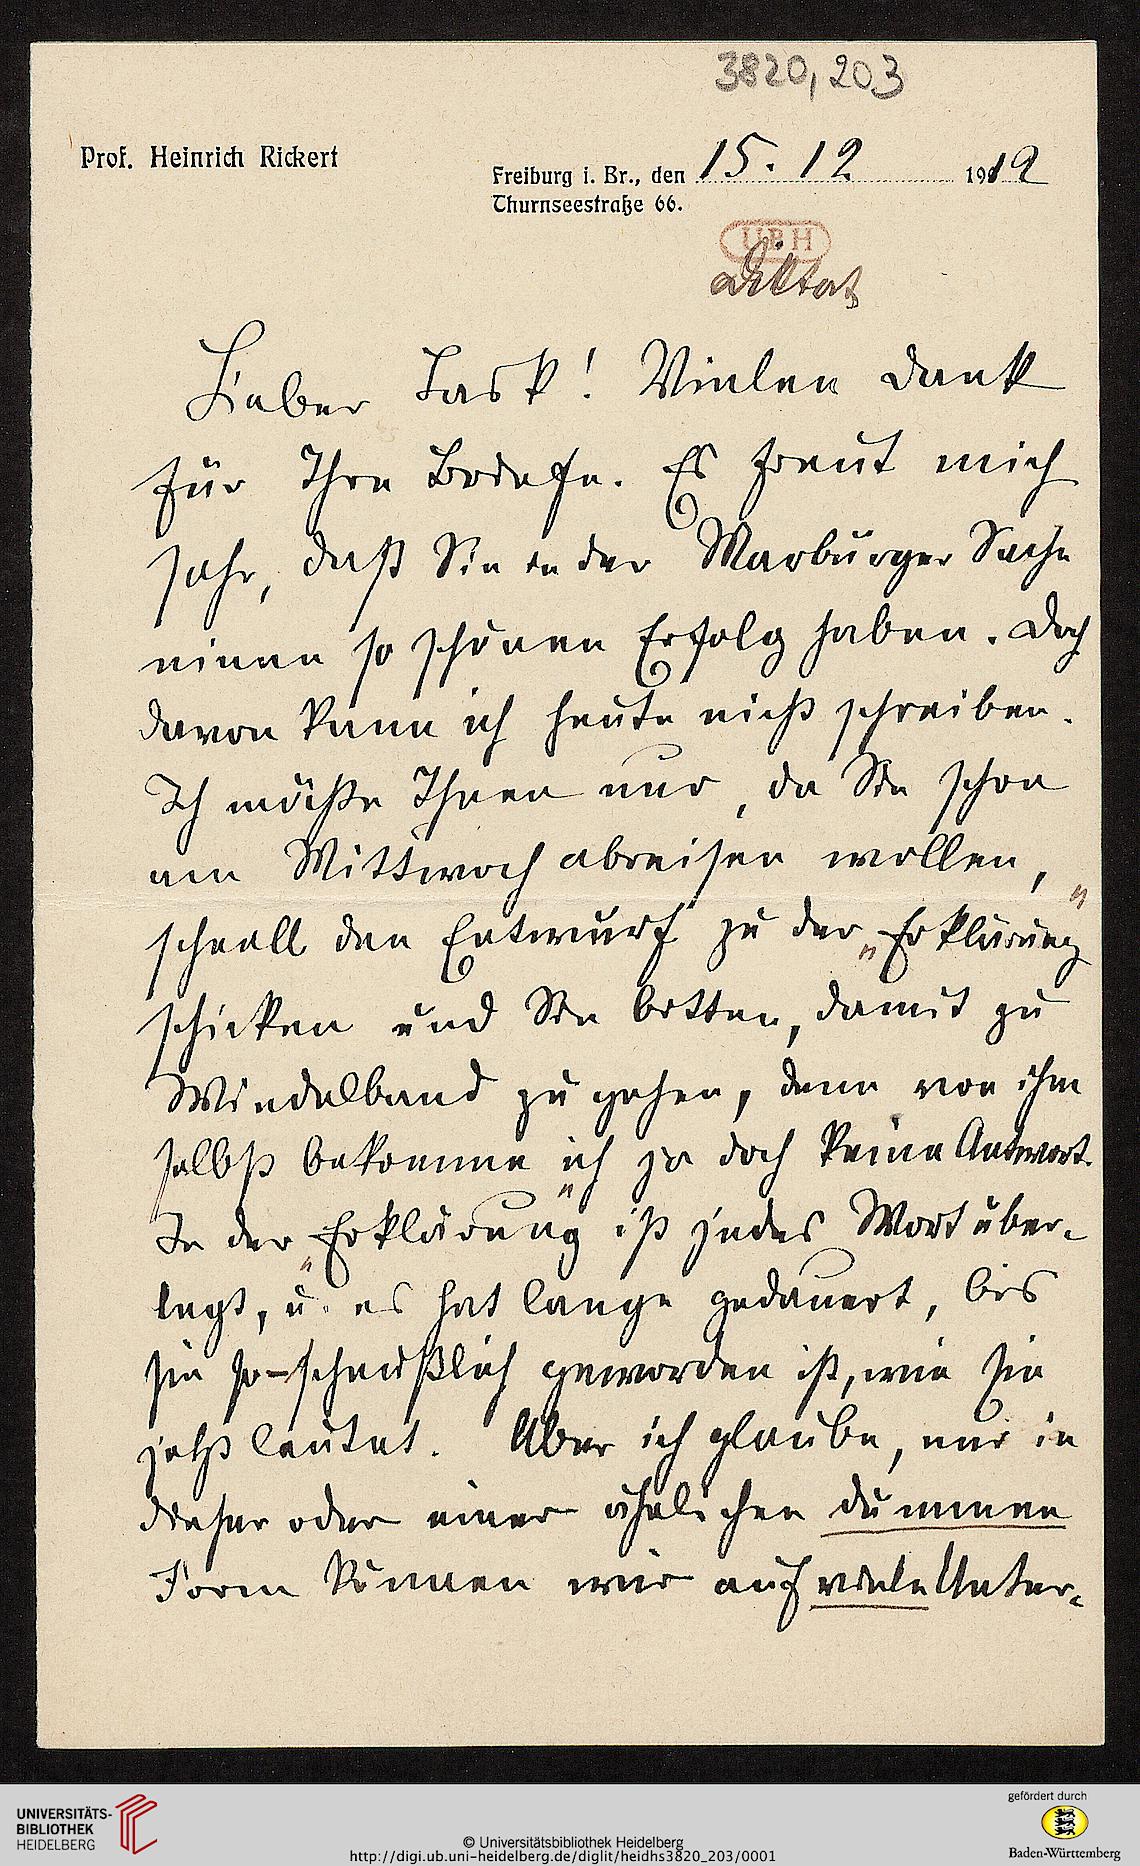 3820,203
Prof. Heinrich Rickert
Freiburg i. Br., den 15. 12 1912
Thurnseestraße 66.
UBH
Diktat
Lieber Lask! Vielen Dank
für Ihre Briefe. Es freut mich
sehr, daß Sie in der Marburger Sache
einen so schönen Erfolg haben. Doch
davon kann ich heute nicht schreiben.
Ich möchte Ihnen nur, da Sie schon
am Mittwoch abreisen wollen,
schnell den Entwurf zu der „Erklärung"
schicken und Sie bitten, damit zu
Windelband zu gehen, denn von ihm
selbst bekomme ich ja doch keine Antwort.
In der „Erklärung" ist jedes Wort über-
legt, u. es hat lange gedauert, bis
sie so scheußlich geworden ist, wie sie
jetzt lautet. Aber ich glaube, nur in
dieser oder einer ähnlichen dummen
Form können wir auf viele Unter-
UNIVERSITÄTS-
BIBLIOTHEK
HEIDELBERG
© Universitätsbibliothek Heidelberg
http://digi.ub.uni-heidelberg.de/diglit/heidhs3820_203/0001
gefördert durch
Baden-Württemberg